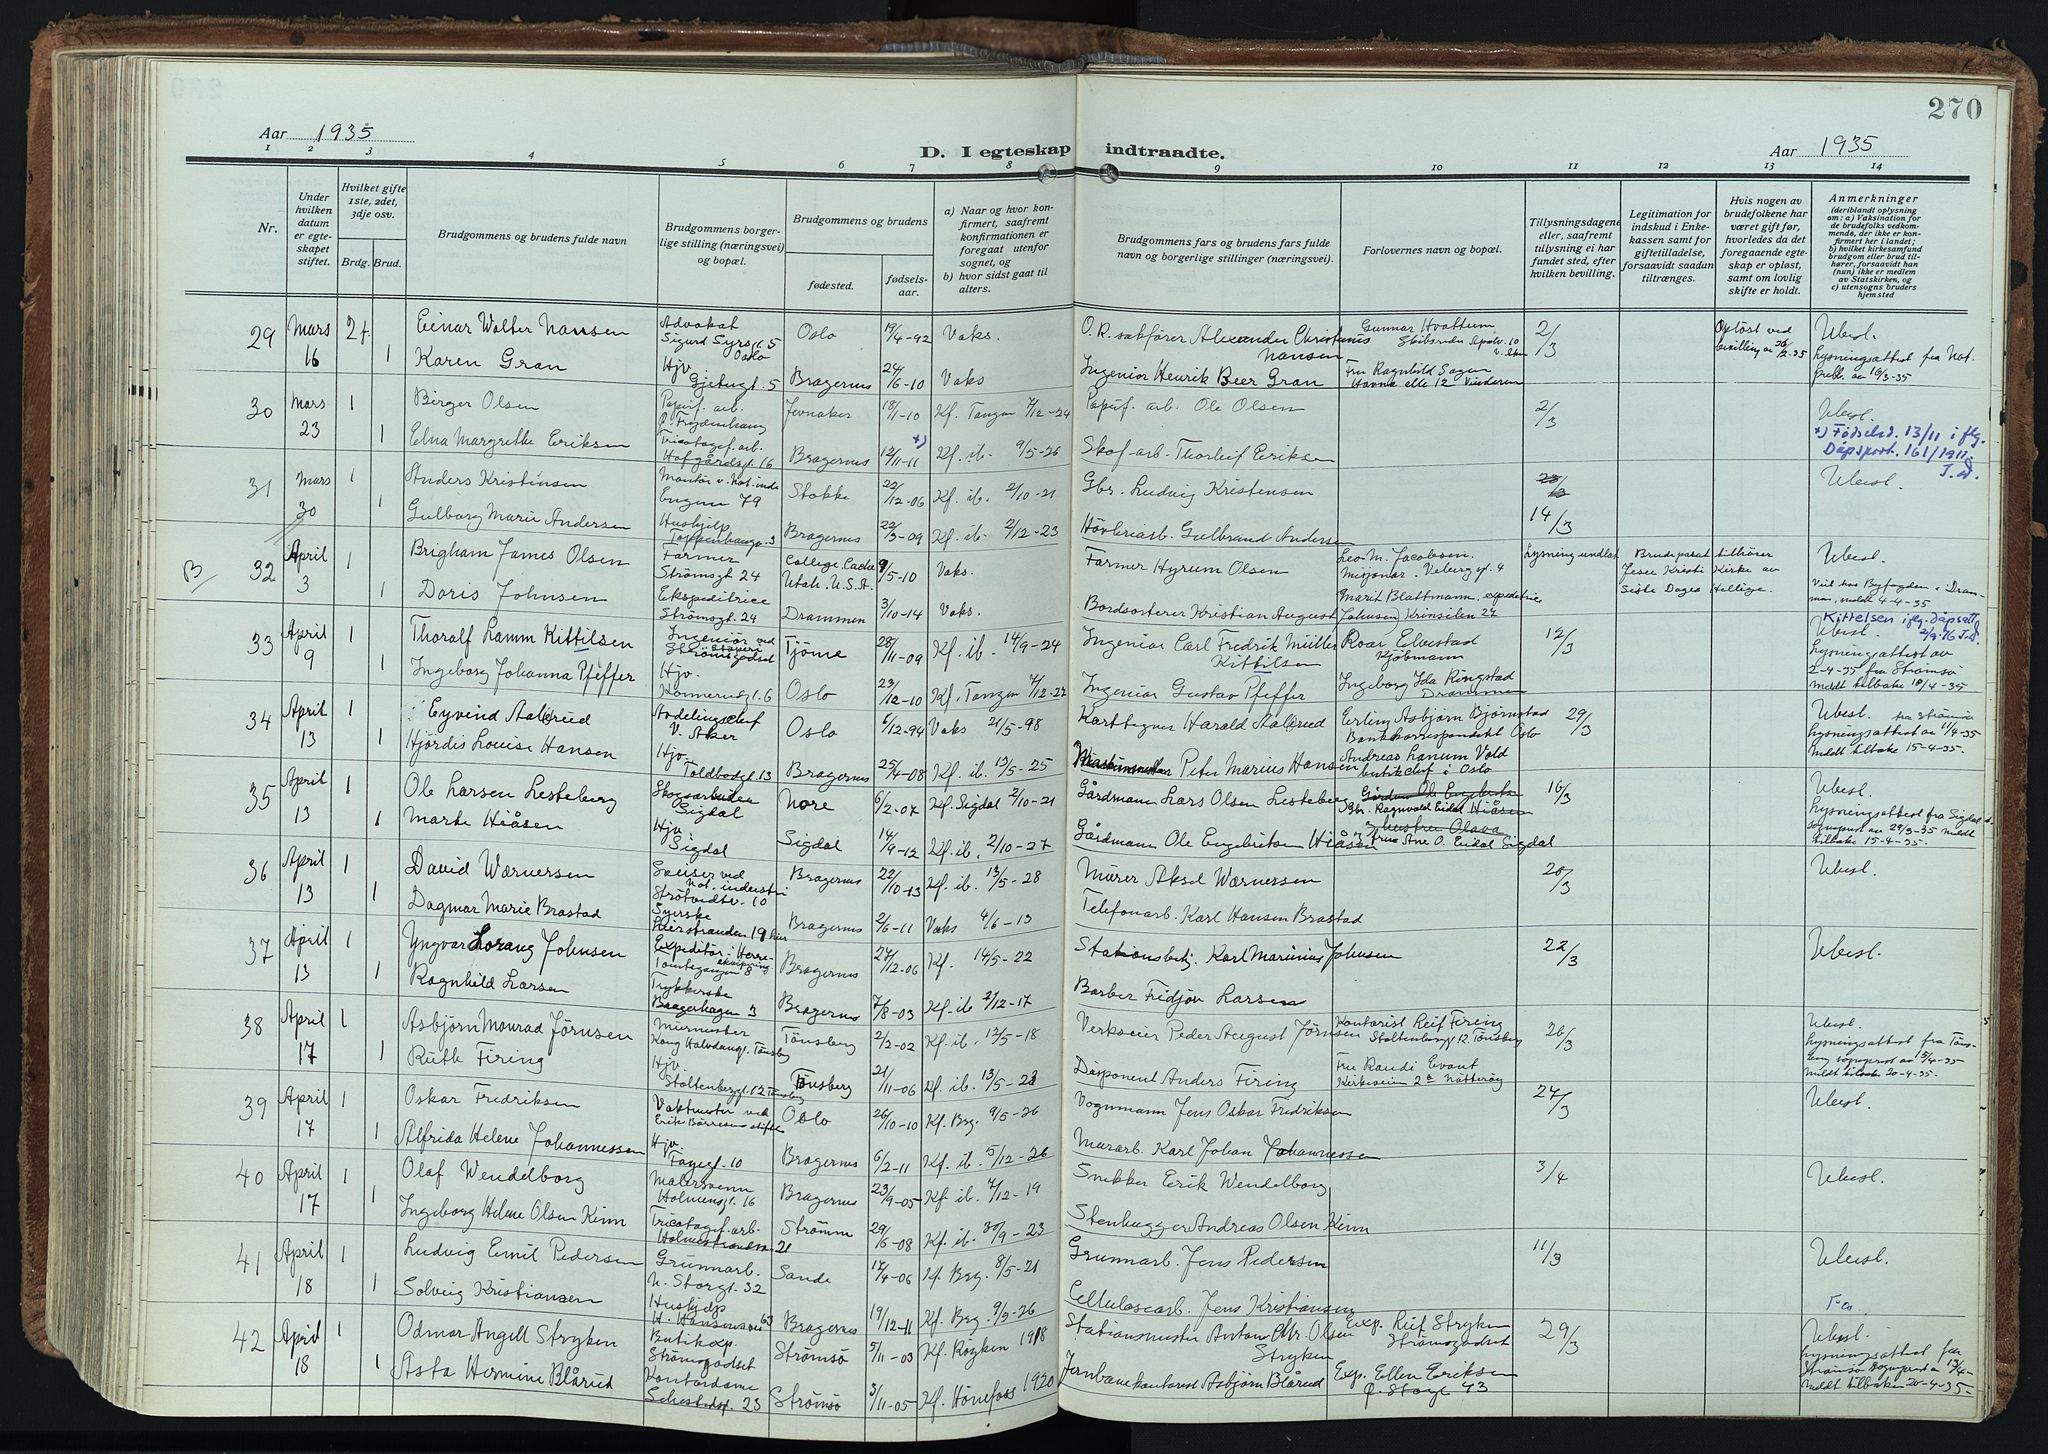 270
Aar 1935
D. I egteskap indtraadte.
Aar 1935
1 2 3 4 5 6 7 8 9 10 11 12 13 14
Nr.
Under hvilken datum er egteskapet stiftet.
Hvilket gifte 1ste, 2det, 3dje osv.
Brdg. Brud.
Brudgommens og brudens fulde navn
Brudgommens borgerlige stilling (næringsvei) og bopæl.
Brudgommens og brudens
fødested.
fødselsaar.
a) Naar og hvor konfirmert, saafremt konfirmationen er foregaat utenfor sognet, og
b) hvor sidst gaat til alters.
Brudgommens fars og brudens fars fulde navn og borgerlige stillinger (næringsvei).
Forlovernes navn og bopæl.
Tillysningsdagene eller, saafremt tillysning ei har fundet sted, efter hvilken bevilling.
Legitimation for indskud i Enkekassen samt for giftetilladelse, forsaavidt saadan tiltrænges.
Hvis nogen av brudefolkene har været gift før, hvorledes da det foregaaende egteskap er opløst, samt om lovlig skifte er holdt.
Anmerkninger
(deriblandt oplysning om: a) Vaksination for de brudefolks vedkommende, der ikke er konfirmert her i landet; b) hvilket kirkesamfund brudgom eller brud tilhører, forsaavidt han (hun) ikke er medlem av Statskirken, og c) utensogns bruders hjemsted
29 Mars 16 2 f. Einar Walter Nansen Advokat Sigurd Syrsgt. 5 Oslo Oslo 19/4-92 Vaks. O.R. sakfører Alexander Christinus Nansen Gunnar Hvattum 2/3 Opløst ved bevilling av Ubesl.
1 Karen Gran Hjv. Gjetergt. 5 Bragernes 24/6-10 Vaks Ingeniør Henrik Beer Gran Fru Ragnhild Sagen Havna alle 12 Vinderen Lysningsattest fra Not. publ. av 16/3-35
30 Mars 23 1 Birger Olsen Papirf. arb. Jevnaker 18/1-10 Kf. Tangen 7/12-24 Papirf. arb. Ole Olsen 2/3 Ubesl.
1 Edna Margrethe Eriksen Tricotagef. arb. Hofgårdsgt. 16 Bragernes 12/11-11 Kf. ib. 9/5-26 Skof. arb. Thorleif Eriksen
+) Fødselsd. 13/11 iflg. Dåpsprot. 161/1911.
31 Mars 30 1 Anders Kristensen Montør v. Not. inde Engene 79 Stokke 22/12-06 Kf. ib. 2/10-21 Gbr. Ludvig Kristensen 23/3 14/3 Ubesl.
1 Gulborg Marie Andersen Hushjelp Toppenhaugen 3 Bragernes 22/3-09 Kf. ib. 2/12-23 Høvleriarb. Gulbrand Andersen
B/ 32 April 3 1 Brigham James Olsen Farmer Strømsgt. 24 College. Cache Utah. U.S.A. 9/5-10 Vaks. Farmer Hyrum Olsen Leo M. Jacobsen. Misjonær. Lysning undlat Brudeparet tilhører Jesu Kristi Kirke av Siste Dages Hellige. Ubesl.
1 Doris Johnsen Ekspeditrice Strømsgt. 24 Drammen 3/10-14 Vaks. Bordsorterer Kristian August Johnsen Marit Blattmann. expeditrice Viet hos Byfogden i Drammen, meldt 4-4-35
33 April 9 1 Thoralf Lamm Kittilsen Ingeniør ved Strømsgodset Tjøme 28/11-09 Kf. ib. 14/9-24 Ingeniør Carl Fredrik Müller Kittilsen Roar Elvestad Kjøbmann 12/3 Kittelsen iflg. dåpsatt. Ubesl.
1 Ingeborg Johanna Pfeffer Hjv. Konnerudgt. 6 Oslo 23/12-10 Kf. Tangen 7/12-27 Ingeniør Gustav Pfeffer Ingeborg Ida Ringstad Drammen Lysningsattest av 2-4-35 fra Strømsø meldt tilbake 10/4-35
34 April 13 1 Eyvind Aalerud Avdelingschef V. Aker Oslo 6/12-94 Vaks 21/5-98 Karttegner Harald Aalerud Erling Asbjørn Bjørnstad Bankkorrespondent Oslo 29/3 Ubesl.
1 Hjørdis Louise Hansen Hjv. Toldbodgt. 13 Bragernes 25/4-08 Kf. ib. 13/5-25 Peter Marius Hansen Andreas Lanum Vold butikchef i Oslo Lysningsattest av 11/4-35 Meldt tilbake 15-4-35.
35 April 13 1 Ole Larsen Lesteberg Skogsarbeider Sigdal Nore 6/2-07 Kf. Sigdal 2/10-21 Gårdmann Lars Olsen Lesteberg Gbr. Ragnvald Eidal 16/3 Ubesl.
1 Marte Hiåsen Hjv. Sigdal Sigdal 14/9-12 Kf. ib. 2/10-27 Gårdmann Ole Engebretsen Hiåsen frue Ane O. Eidal Sigdal Lysningsattest fra Sigdal sogneprest av 29/3-35 meldt tilbake 15-4-35.
36 April 13 1 David Wærnersen Bragernes 22/10-13 Kf. ib. 13/5-28 Murer Aksel Wærnersen 20/3 Ubesl.
1 Dagmar Marie Brastad Syerske Lierstranden 19 Bragernes 2/6-11 Vaks 4/6-13 Telefonarb. Karl Hansen Brastad
37 April 13 1 Yngvar Lorang Johnsen Expeditør i Herreekvipering Bragernes 27/12-06 Kf. 14/5-22 Stationsbetj. Karl Marinius Johnsen 22/3 Ubesl.
1 Ragnhild Larsen Trykkerske Bragerhagen 3 Bragernes 7/8-03 Kf. ib 2/12-17 Barber Fridjov Larsen
38 April 17 1 Asbjørn Monrad Jørnsen Murmester Kong Halvdansgt. Tønsberg Tønsberg 2/2-02 Kf. ib. 12/5-18 Verkseier Peder August Jørnsen Kontorist Reif Firing Stoltenbergsgt 12. Tønsberg 26/3 Ubesl.
1 Ruth Firing Hjv. Stoltenberggt. 12 Tønsberg Tønsberg 21/11-06 Kf. ib 13/5-22 Disponent Anders Firing Fru Randi Evant Kirkeveien 2a Nøtterøy Lysningsattest fra Tønsberg sogneprest av 15/4-35 Meldt tilbake 20-4-35.
39 April 17 1 Oskar Fredriksen Vaktmester ved Erik Børresens stiftelse Oslo 26/10-10 Kf. Brg. 9/5-26 Vognmann Jens Oskar Fredriksen 24/3 Ubesl.
1 Alfrida Helene Johannessen Hjv. Fayegt. 10 Bragernes 6/2-11 Kf. ib. 5/12-26 Murarb. Karl Johan Johannessen
40 April 17 1 Olaf Wendelborg Malersvenn Holmensgt. 16 Bragernes 23/9-05 Kf. ib. 7/12-19 Snekker Erik Wendelborg 3/4 Ubesl.
1 Ingeborg Helene Olsen Kinn Tricotagef. arb. Holmestrandsv. 21 Strømm 29/6-08 Kf. ib. 30/9-23 Stenhugger Andreas Olsen Kinn
41 April 18 1 Ludvig Emil Pedersen Grunnarb. N. Storgt. 32 Sande 17/4-06 Kf. Brg. 8/5-21 Grunnarb. Jens Pedersen 11/3 Ubesl.
1 Solveig Kristiansen Hushjelp H. Hansensvei 63 Bragernes 19/12-11 Kf. Brg. 9/5-26 Cellulosearb. Jens Kristiansen
42 April 18 1 Odmar Angell Stryken Butikexp. Strømsgodset Strømsø 5/11-03 Kf. Røyken 1918 Stationsmester Anton Chr. Olsen Stryken Exp. Reif Stryken Strømsgodset 29/3 Ubesl.
1 Asta Hermine Blårud Kontordame Sehestedsgt. 23 Strømsø 3/11-05 Kf. Hønefoss 1920 Jernbanekontorist Asbjørn Blårud Exp. Ellen Eriksen Ø. Storgt 43 Lysningsattest fra Strømsø Meldt tilbake 20-4-35-